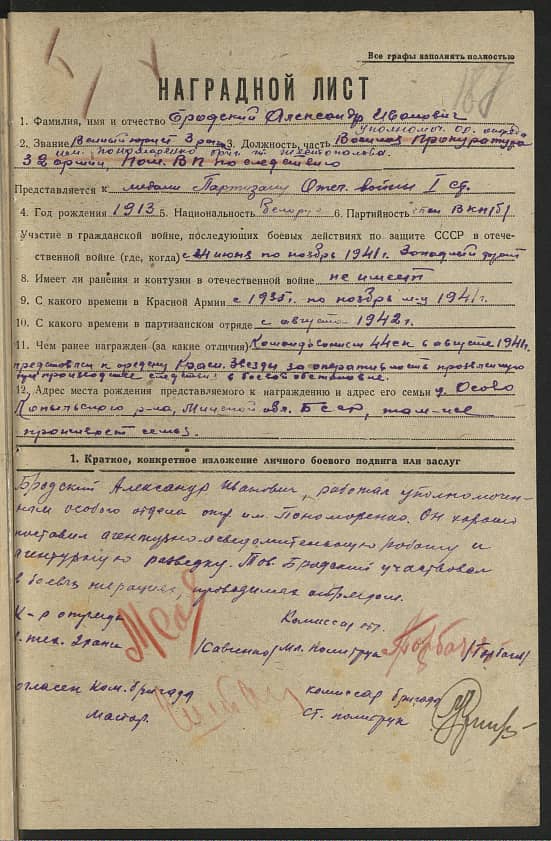 Все графы заполнять полностью
187
НАГРАДНОЙ ЛИСТ
1. Фамилия, имя и отчество Бродский Александр Иванович
уполномоч. ос. отдела
2. Звание Военный юрист 3 ранга 3. Должность, часть Военная Прокуратура
им. Пономаренко бриг.
3 армии, Пом. ВП по следствию
Представляется к медали Партизану Отеч. войны I ст.
4. Год рождения 1913 5. Национальность Белорус 6. Партийность член ВКП(б)
Участие в гражданской войне, последующих боевых действиях по защите СССР в отече-
ственной войне (где, когда) с 24 июня по ноябрь 1941 г. Западный фронт
8. Имеет ли ранения и контузии в отечественной войне не имеет
9. С какого времени в Красной Армии с 1935 г. по ноябрь м-ц 1941 г.
10. С какого времени в партизанском отряде с августа 1942 г.
11. Чем ранее награжден (за какие отличия) Командованием 44 ск в августе 1941 г.
представлен к ордену Красн. Звезды за оперативность проявленную
при производстве следствия в боевой обстановке.
12. Адрес места рождения представляемого к награждению и адрес его семьи д. Осово
Копыльского р-на, Минской обл. БССР, там-же
проживает семья.
1. Краткое, конкретное изложение личного боевого подвига или заслуг
Бродский Александр Иванович, работал уполномочен-
ным особого отдела отр. им. Пономоренко. Он хорошо
поставил агентурно-осведомительную работу и
агентурную разведку. Тов. Бродский участвовал
в боевых операциях, проводимых отрядом.
К-р отряда Комиссар отр.
т. тех. 2 ранга /Савченко/ Мл. политрук Горбач /Горбач/
огласен Ком. бригады комиссар бригады
Майор. Ст. политрук